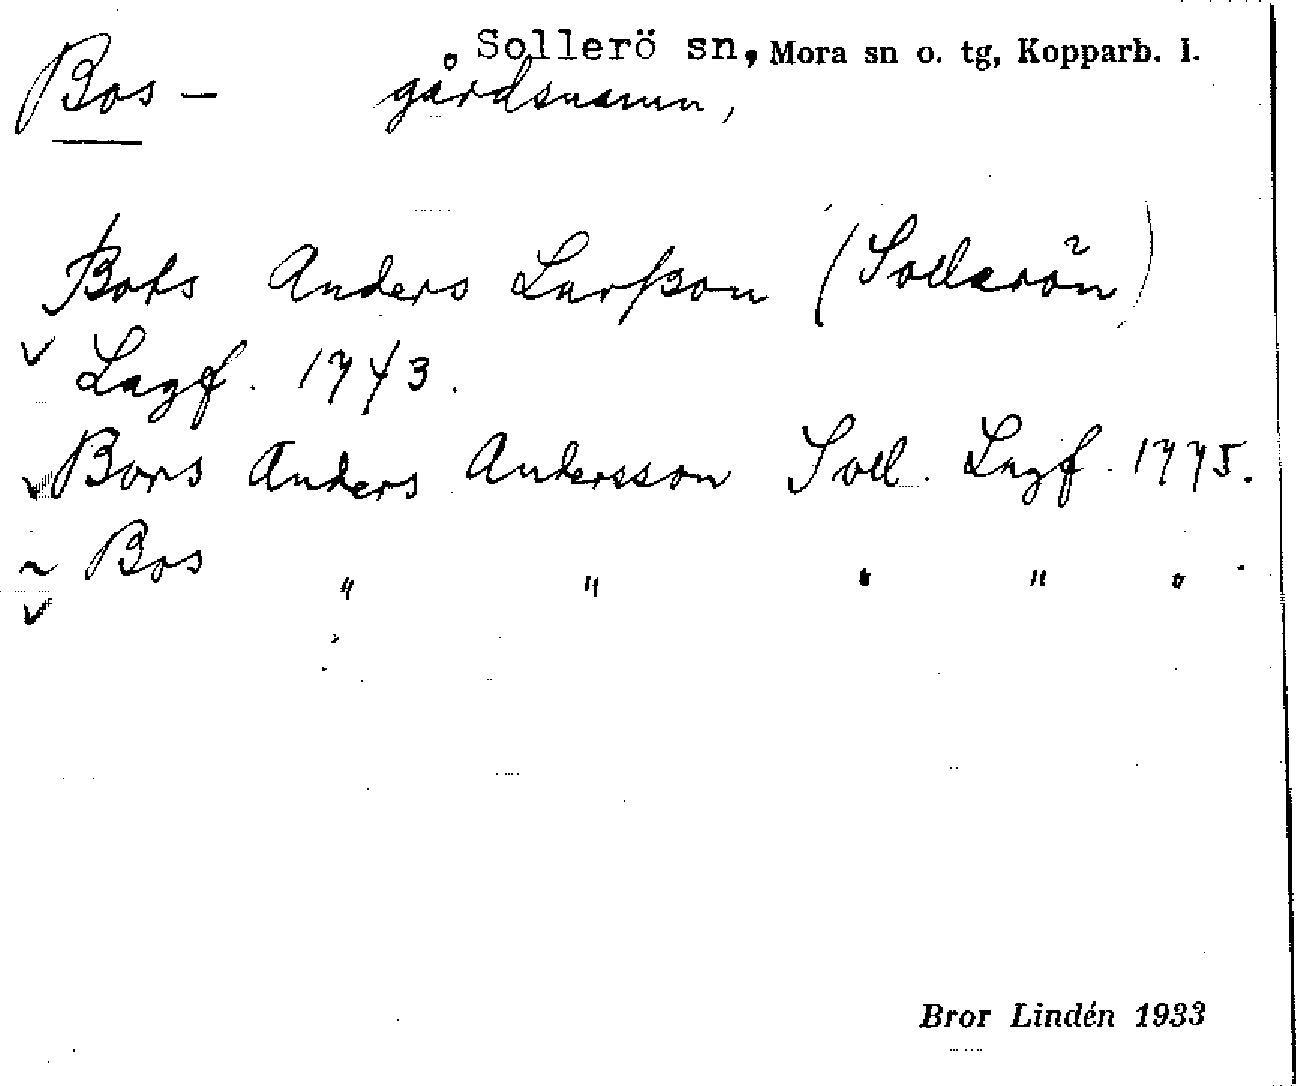 Sollerö sn, Mora sn o. tg, Kopparb. l.
Bos – gårdsnamn,
Bots Anders Larsson (Sollerön)
Lagf. 1743.
Bors Anders Andersson Soll. Lagf. 1775.
~ Bos " " " " " .
Bror Lindén 1933